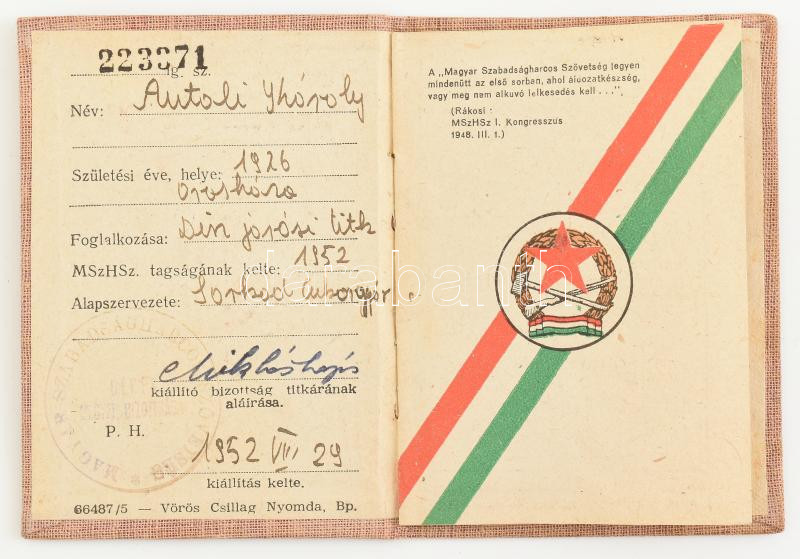 223371
ig. sz.
Név: Antali Károly
Születési éve, helye: 1926
Orosháza
Foglalkozása: Din járási titk
MSzHSz. tagságának kelte: 1952
Alapszervezete: Sarkad Cukorgyár
Miklós Lajos
kiállító bizottság titkárának
aláírása.
P. H.
1952 VIII 29
kiállítás kelte.
66487/5 — Vörös Csillag Nyomda, Bp.
A „Magyar Szabadságharcos Szövetség legyen
mindenütt az első sorban, ahol áldozatkészség,
vagy meg nem alkuvó lelkesedés kell . . .".
(Rákosi :
MSzHSz I. Kongresszus
1948. III. 1.)
darabanth